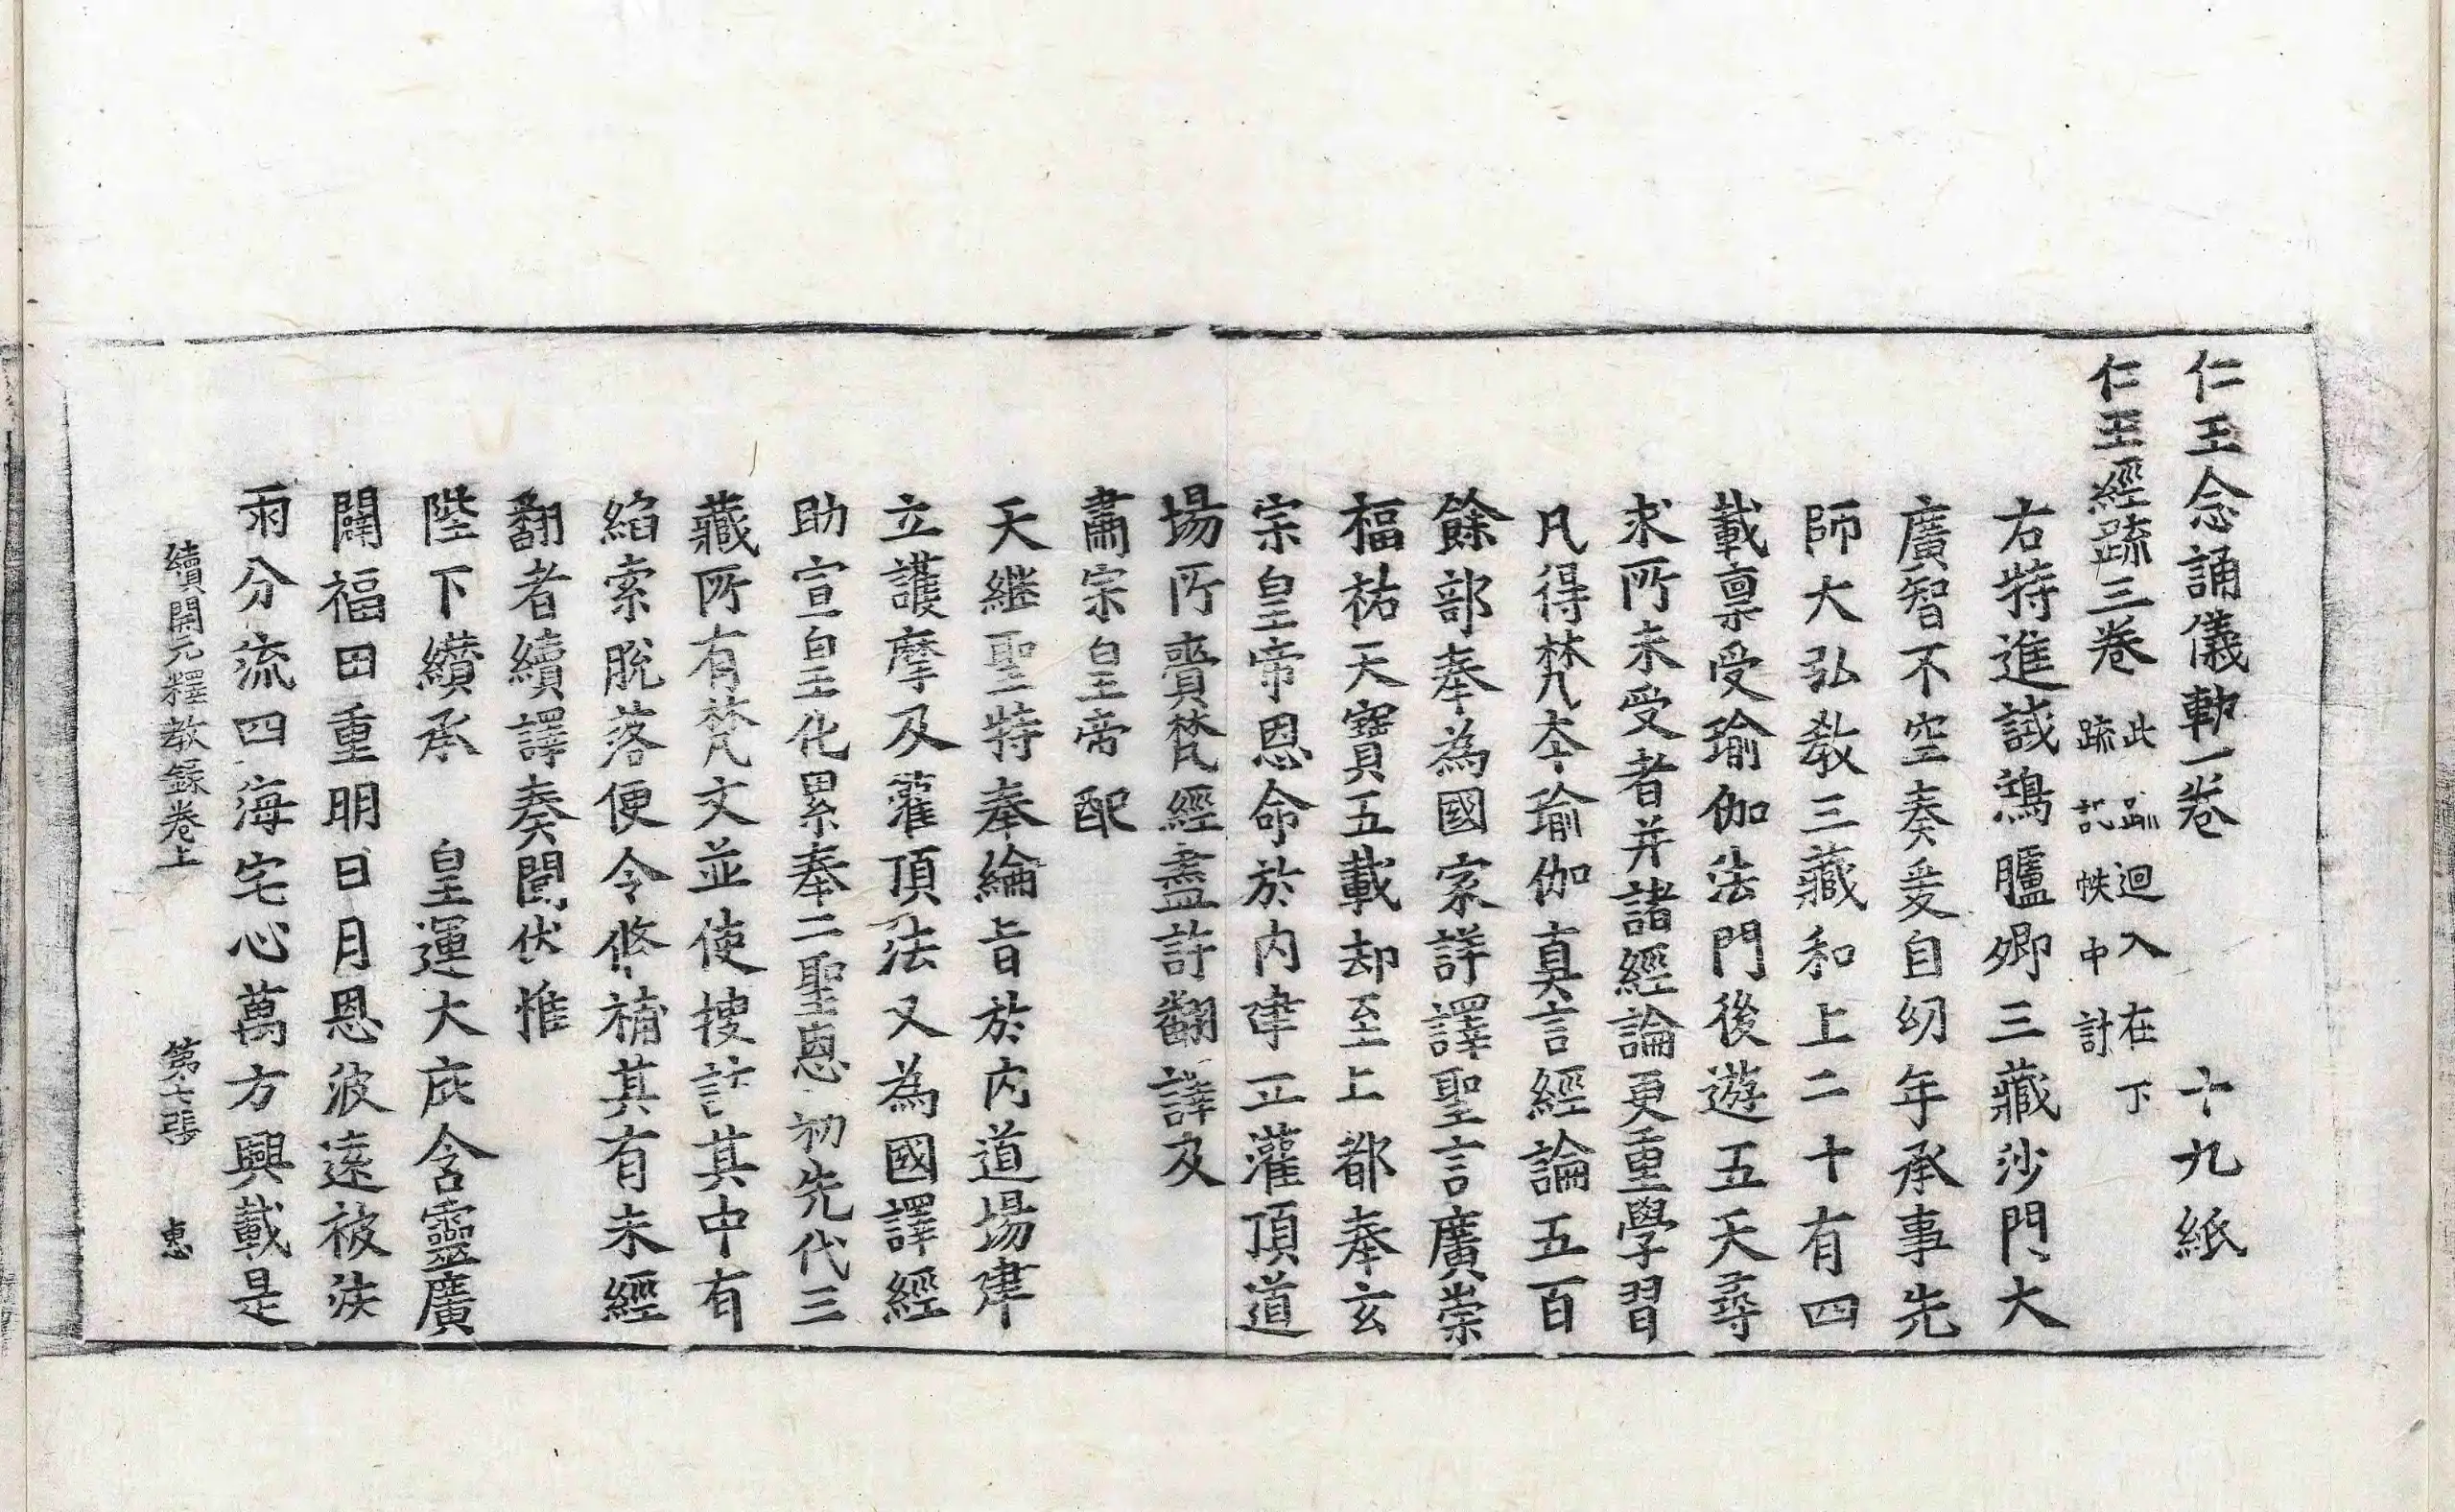 仁王念誦儀軌一卷 十九紙
仁王經疏三卷 此䟽迴入在下疏記帙中計
右特進試鴻臚卿三藏沙門大
廣智不空奏爰自幼年承事先
師大弘教三藏和上二十有四
載禀受瑜伽法門後遊五天尋
求所未受者并諸經論更重學習
凡得梵夲瑜伽真言經論五百
餘部奉為國家詳譯聖言廣崇
福祐天寶五載却至上都奉玄
宗皇帝恩命於内建立灌頂道
場所賷梵經盡許翻譯及
肅宗皇帝配
天継聖特奉綸旨於内道場建
立護摩及灌頂法又為國譯經
助宣皇化累奉二聖恩勑先代三
藏所有梵文並使搜訪其中有
縚索脫落便令修補其有未經
翻者續譯奏聞伏惟
陛下纘承 皇運大庇含靈廣
闢福田重明日月恩波遠被法
雨分流四海宅心萬方興載是
續開元釋教錄卷上 第七張 惠